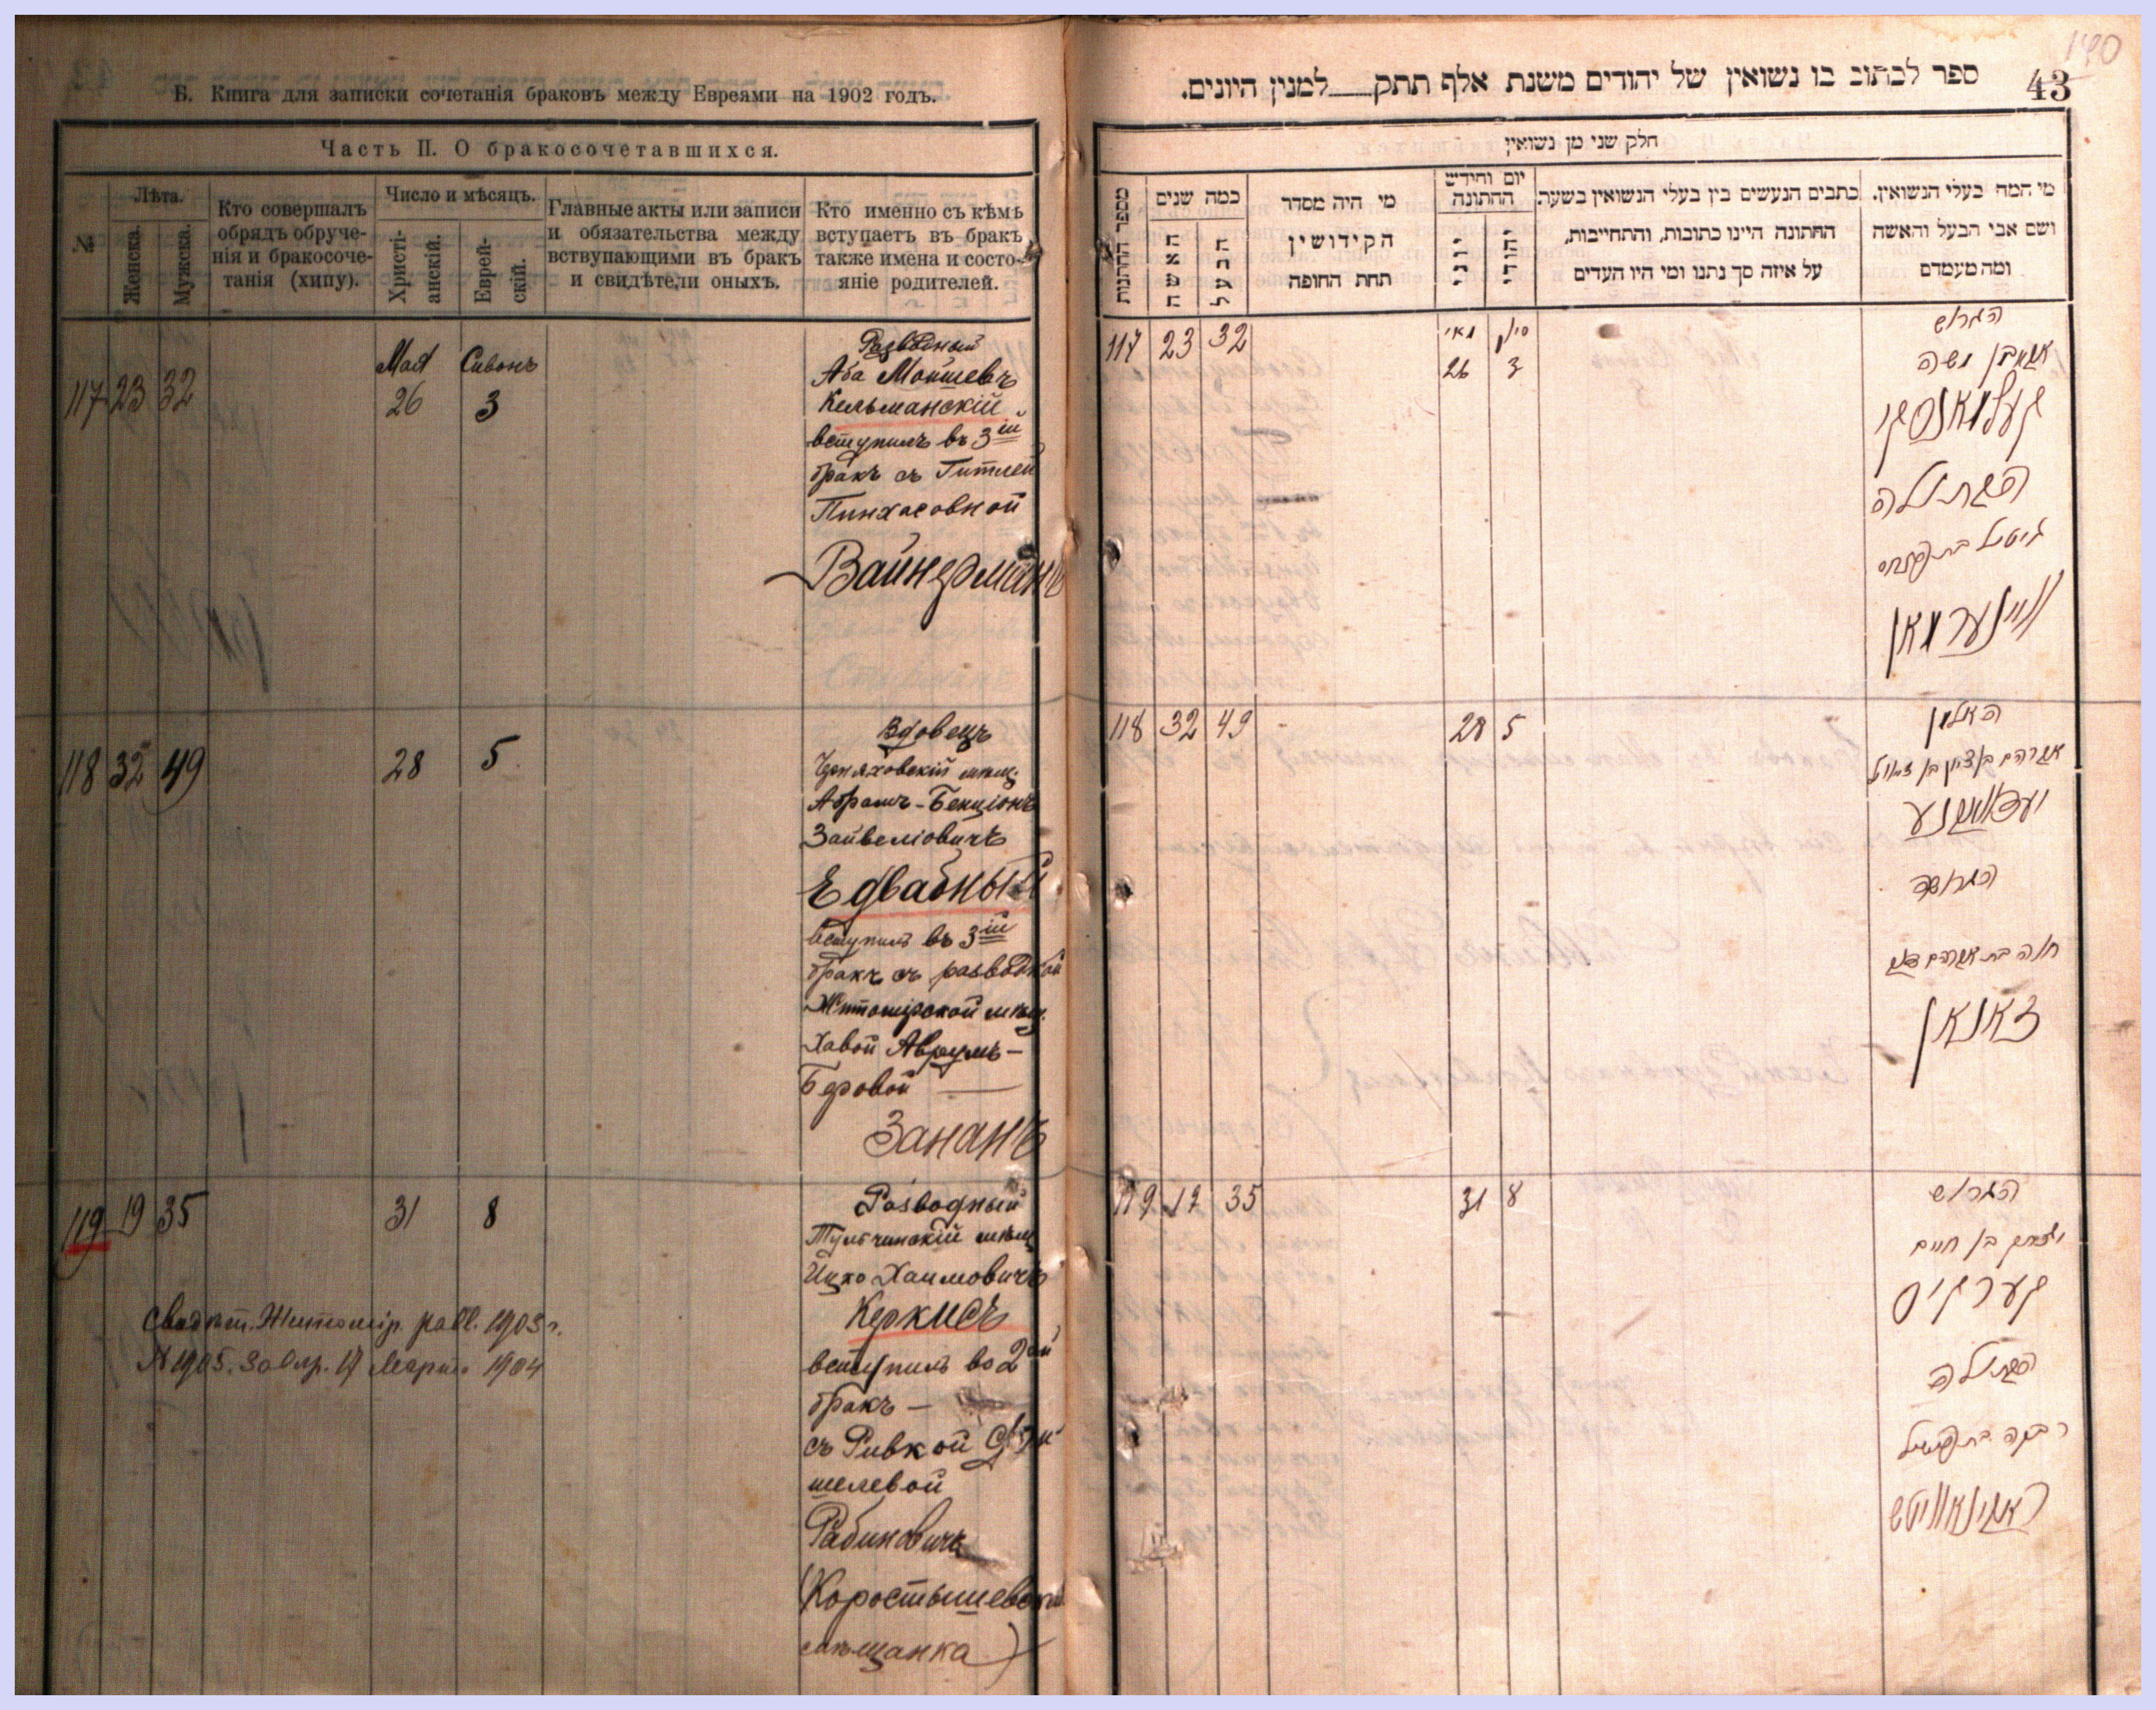 Б. Книга для записки сочетанія браковъ между Евреями на 1902 годъ.
Часть II. О бракосочетавшихся.
№
Лѣта.
Женска.
Мужска.
Кто совершалъ
обрядъ обруче-
нія и бракосоче-
танія (хипу).
Число и мѣсяцъ.
Христі-
анскій.
Еврей-
скій.
Главные акты или записи
и обязательства между
вствупающими въ бракъ
и свидѣтели оныхъ.
Кто именно съ кѣмъ
вступаетъ въ бракъ
также имена и состо-
яніе родителей.
117 23 32
Мая Сивонъ
26 3
Разводный
Аба Мошшевъ
Кельманскій
вступилъ въ 3ій
бракъ съ Гитлей
Пинхасовной
Вайнерманъ
118 32 49 28 5
Вдовецъ
Черняховскій мѣщ.
Абрамъ-Бенціонъ
Зайвеліовичъ
Едвабный
вступилъ въ 3ій
бракъ съ разводной
Житомірской мѣщ.
Хавой Аврумъ-
Беровой
Зананъ
119 19 35 31 8
Разводный
Тульчинскій мѣщ
Ицко Хаимовичъ
Керкисъ
вступилъ во 2ой
бракъ —
съ Ривкой
шелевой
Рабиновичъ
(Коростышевская
мѣщанка)
Свидѣт. Житомір. 1903 г.
№ 1905. 17 Марта 1904
140
43
ספר לכתוב בו נשואין של יהודים משנת אלף תתק למנין היונים.
חלק שני מן נשואין
מספר החתונות
כמה שנים
האשה
הבעל
מי היה מסדר
הקידושין
תחת החופה
יום וחידש
החתונה
יוני
יהודי
כתבים הנעשים בין בעלי הנשואין בשעת
החתונה היינו כתובות, והתחייבות,
על איזה סך נתנו ומי היו העדים
מי המה בעלי הנשואין.
ושם אבי הבעל והאשה
ומה מעמדם
117 23 32
מאי סיון
26 3
הגרוש
אבא בן משה
קעלמאנסקי
הבתולה
גיטל בת פנחס
וויינערמאן
118 32 49 28 5
האלמן
אברהם בן ציון בן זאוול
יעדוואבנע
הגרושה
חוה בת אברהם בער
זאנאן
119 19 35 31 8
הגרוש
יצחק בן חיים
קערקיס
הבתולה
רבקה בת
ראבינאוויטש